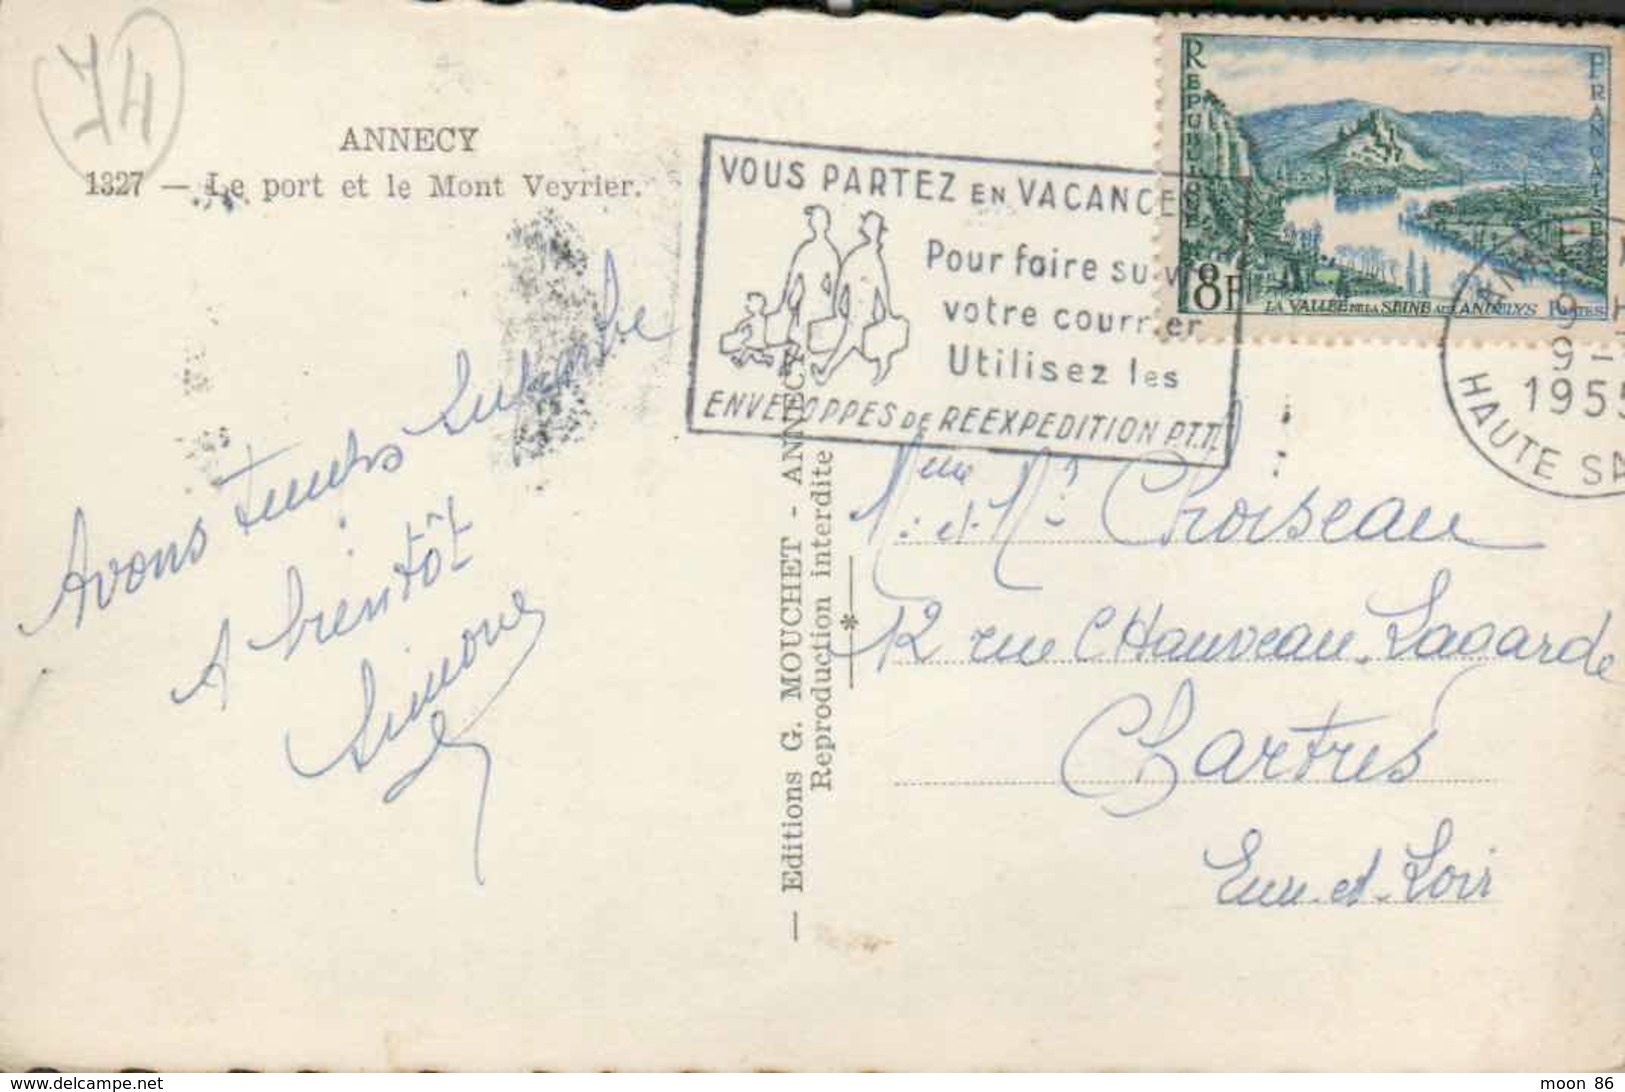 74
ANNECY
1327 — Le port et le Mont Veyrier.
Avons temps superbe
A bientôt
Simone
— Editions G. MOUCHET - ANNECY
Reproduction interdite
*
VOUS PARTEZ EN VACANCE
Pour faire suiv
votre courrier
Utilisez les
ENVELOPPES DE REEXPEDITION P.T.T.
REPUBLIQUE FRANÇAISE
8F
LA VALLEE DE LA SEINE AUX ANDELYS POSTES
ANN
9 H
9 -
1955
HAUTE SA
Mme et Mr Choiseau
12 rue Chauveau-Lagarde
Chartres
Eure-et-Loir
www.delcampe.net
moon 86